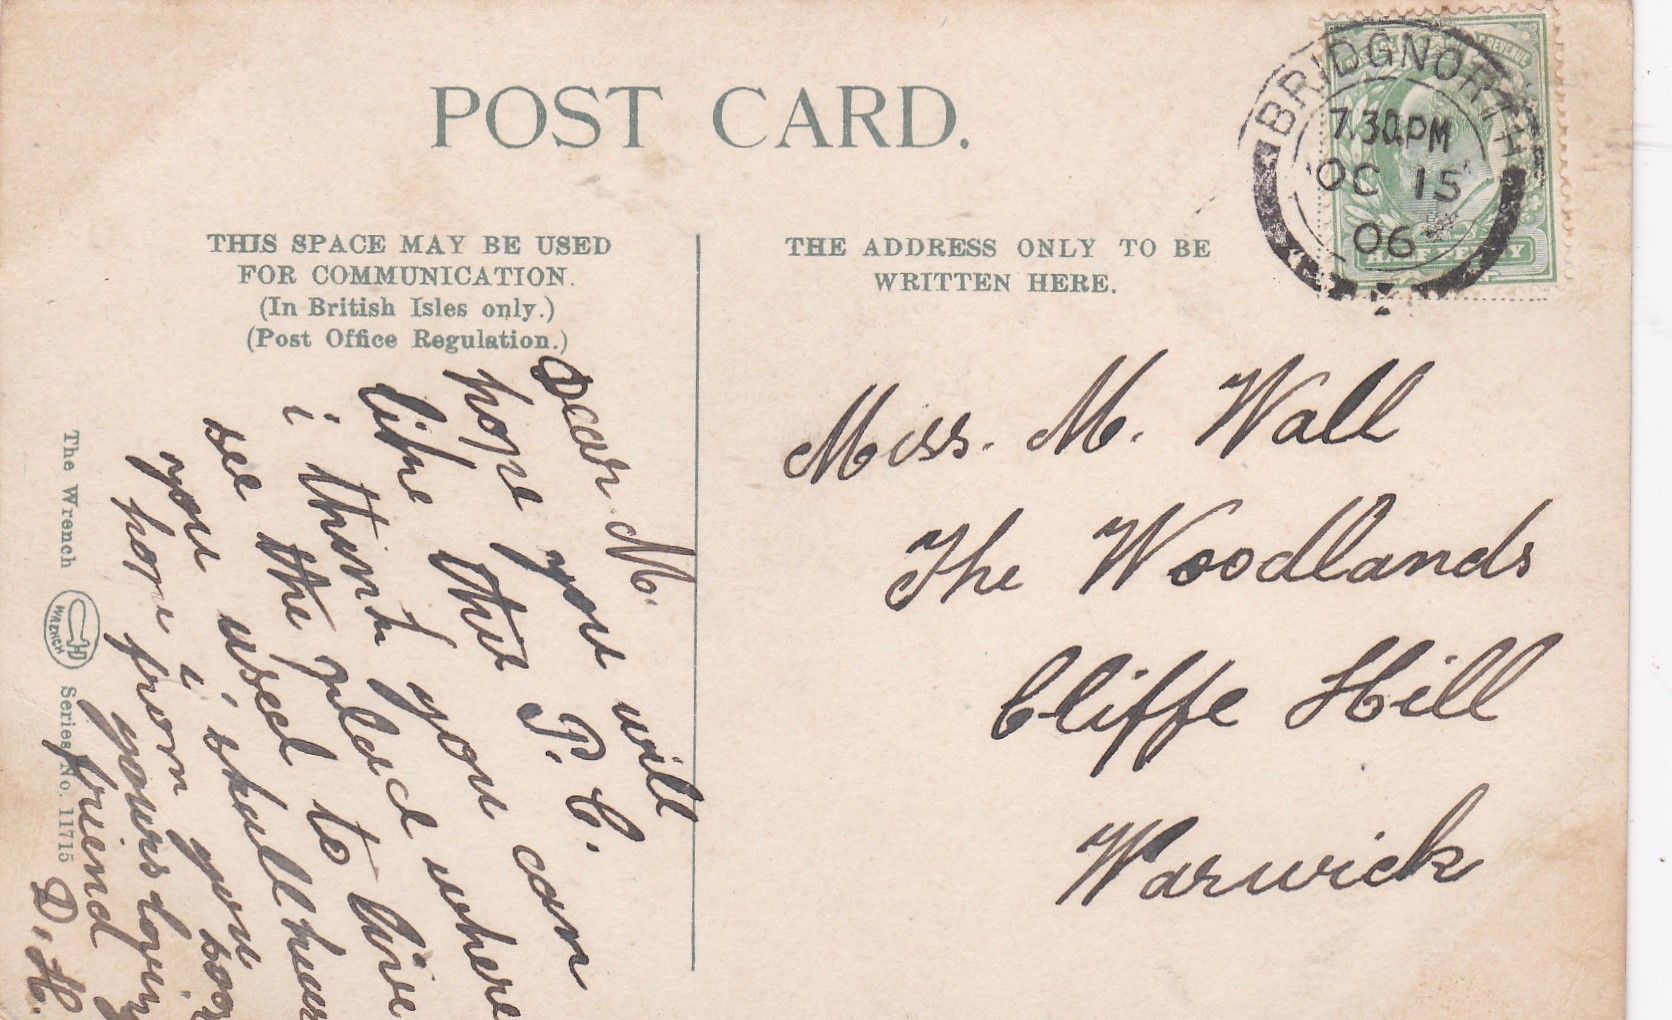 POST CARD.
BRIDGNORTH
7.30PM
OC 15
06
HALFPENNY
THIS SPACE MAY BE USED
FOR COMMUNICATION.
(In British Isles only.)
(Post Office Regulation.)
THE ADDRESS ONLY TO BE
WRITTEN HERE.
Dear M.
hope you will
like this P.C.
i think you can
see the place where
you used to live
hope i shall hear
from you soon
yours loving
friend
D. H.
Miss. M. Wall
The Woodlands
Cliffe Hill
Warwick
The Wrench WRENCH Series No. 11715